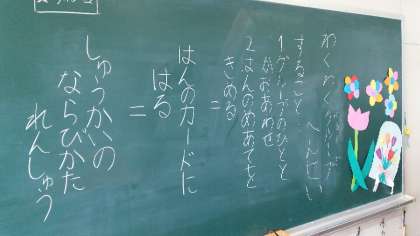 わくわく
すること
1グループのひとと
かおあわせ
2はんのめあてを
きめる
=
はんのカードに
はる
=
しゅうかいの
ならびかた
れんしゅう